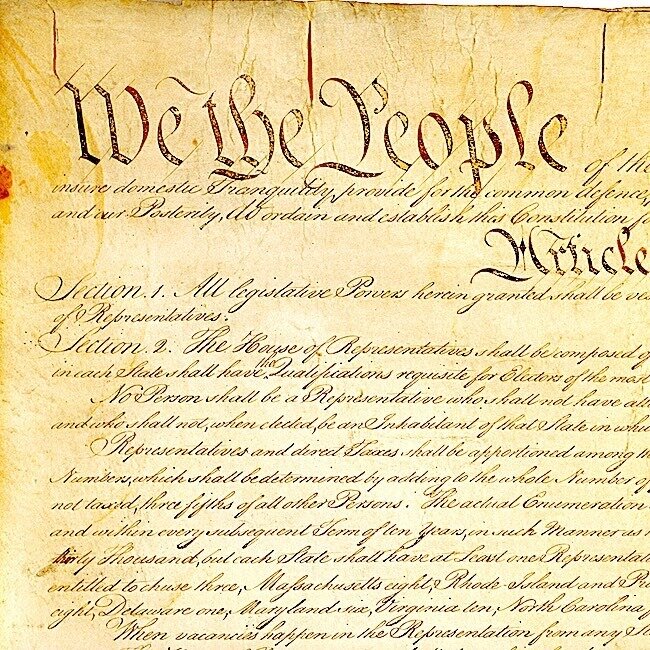 We the People of the
insure domestic Tranquility, provide for the common defence,
and our Posterity, do ordain and establish this Constitution fo
Article
Section. 1. All legislative Powers herein granted shall be ves
of Representatives.
Section. 2. The House of Representatives shall be composed of
in each State shall have the Qualifications requisite for Electors of the most
No Person shall be a Representative who shall not have atta
and who shall not, when elected, be an Inhabitant of that State in whic
Representatives and direct Taxes shall be apportioned among the
Numbers, which shall be determined by adding to the whole Number of
not taxed, three fifths of all other Persons. The actual Enumeration
and within every subsequent Term of ten Years, in such Manner as
thirty Thousand, but each State shall have at Least one Representati
entitled to chuse three, Massachusetts eight, Rhode-Island and Pro
eight, Delaware one, Maryland six, Virginia ten, North Carolina
When vacancies happen in the Representation from any St